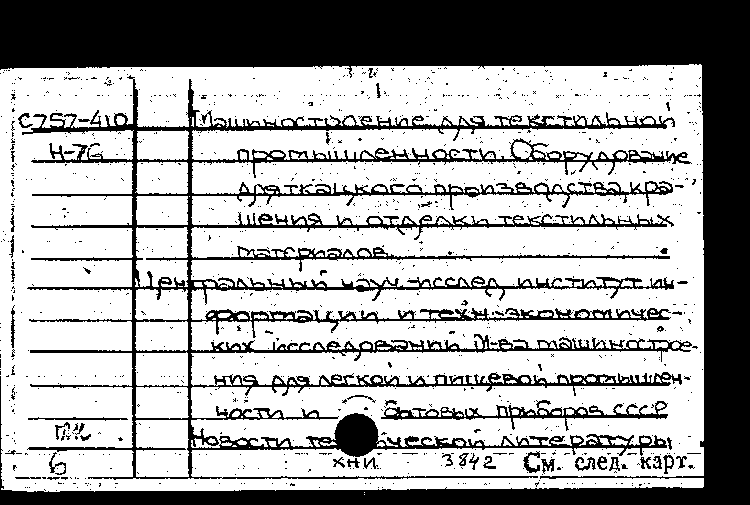 С757-410 Машиностроение для текстильной
Н-76 промышленности. Оборудование
для ткацкого производства, кра-
шения и отделки текстильных
материалов.
Центральный науч.-исслед. институт ин-
формации и техн.-экономичес-
ких исследований М-ва машинострое-
ния для легкой и пищевой промышлен-
ности и бытовых приборов СССР
Новости технической литературы
6 хни 3842 См. след. карт.